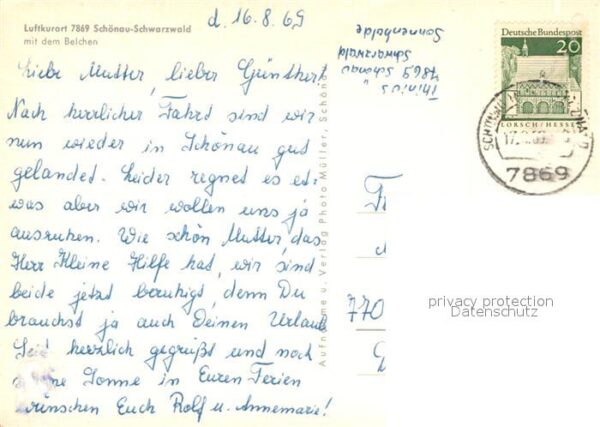 Luftkurort 7869 Schönau-Schwarzwald
mit dem Belchen
d. 16.8.69
Liebe Mutter, lieber Günthert
Nach herrlicher Fahrt sind wir
nun wieder in Schönau gut
gelandet. Leider regnet es et-
was aber wir wollen uns ja
ausruhen. Wie schön Mutter, das
Herr Kleine Hilfe hat, wir sind
beide jetzt beruhigt, denn Du
brauchst ja auch Deinen Urlaub
Seid herzlich gegrüßt und noch
Sonne in Euren Ferien
wünschen Euch Rolf u. Annemarie!
Aufnahme u. Verlag Photo Müller, Schönau
Thinius
7869 Schönau
Schwarzwald
Sonnenhalde
Deutsche Bundespost
20
LORSCH/HESSEN
7869
770
privacy protection
Datenschutz